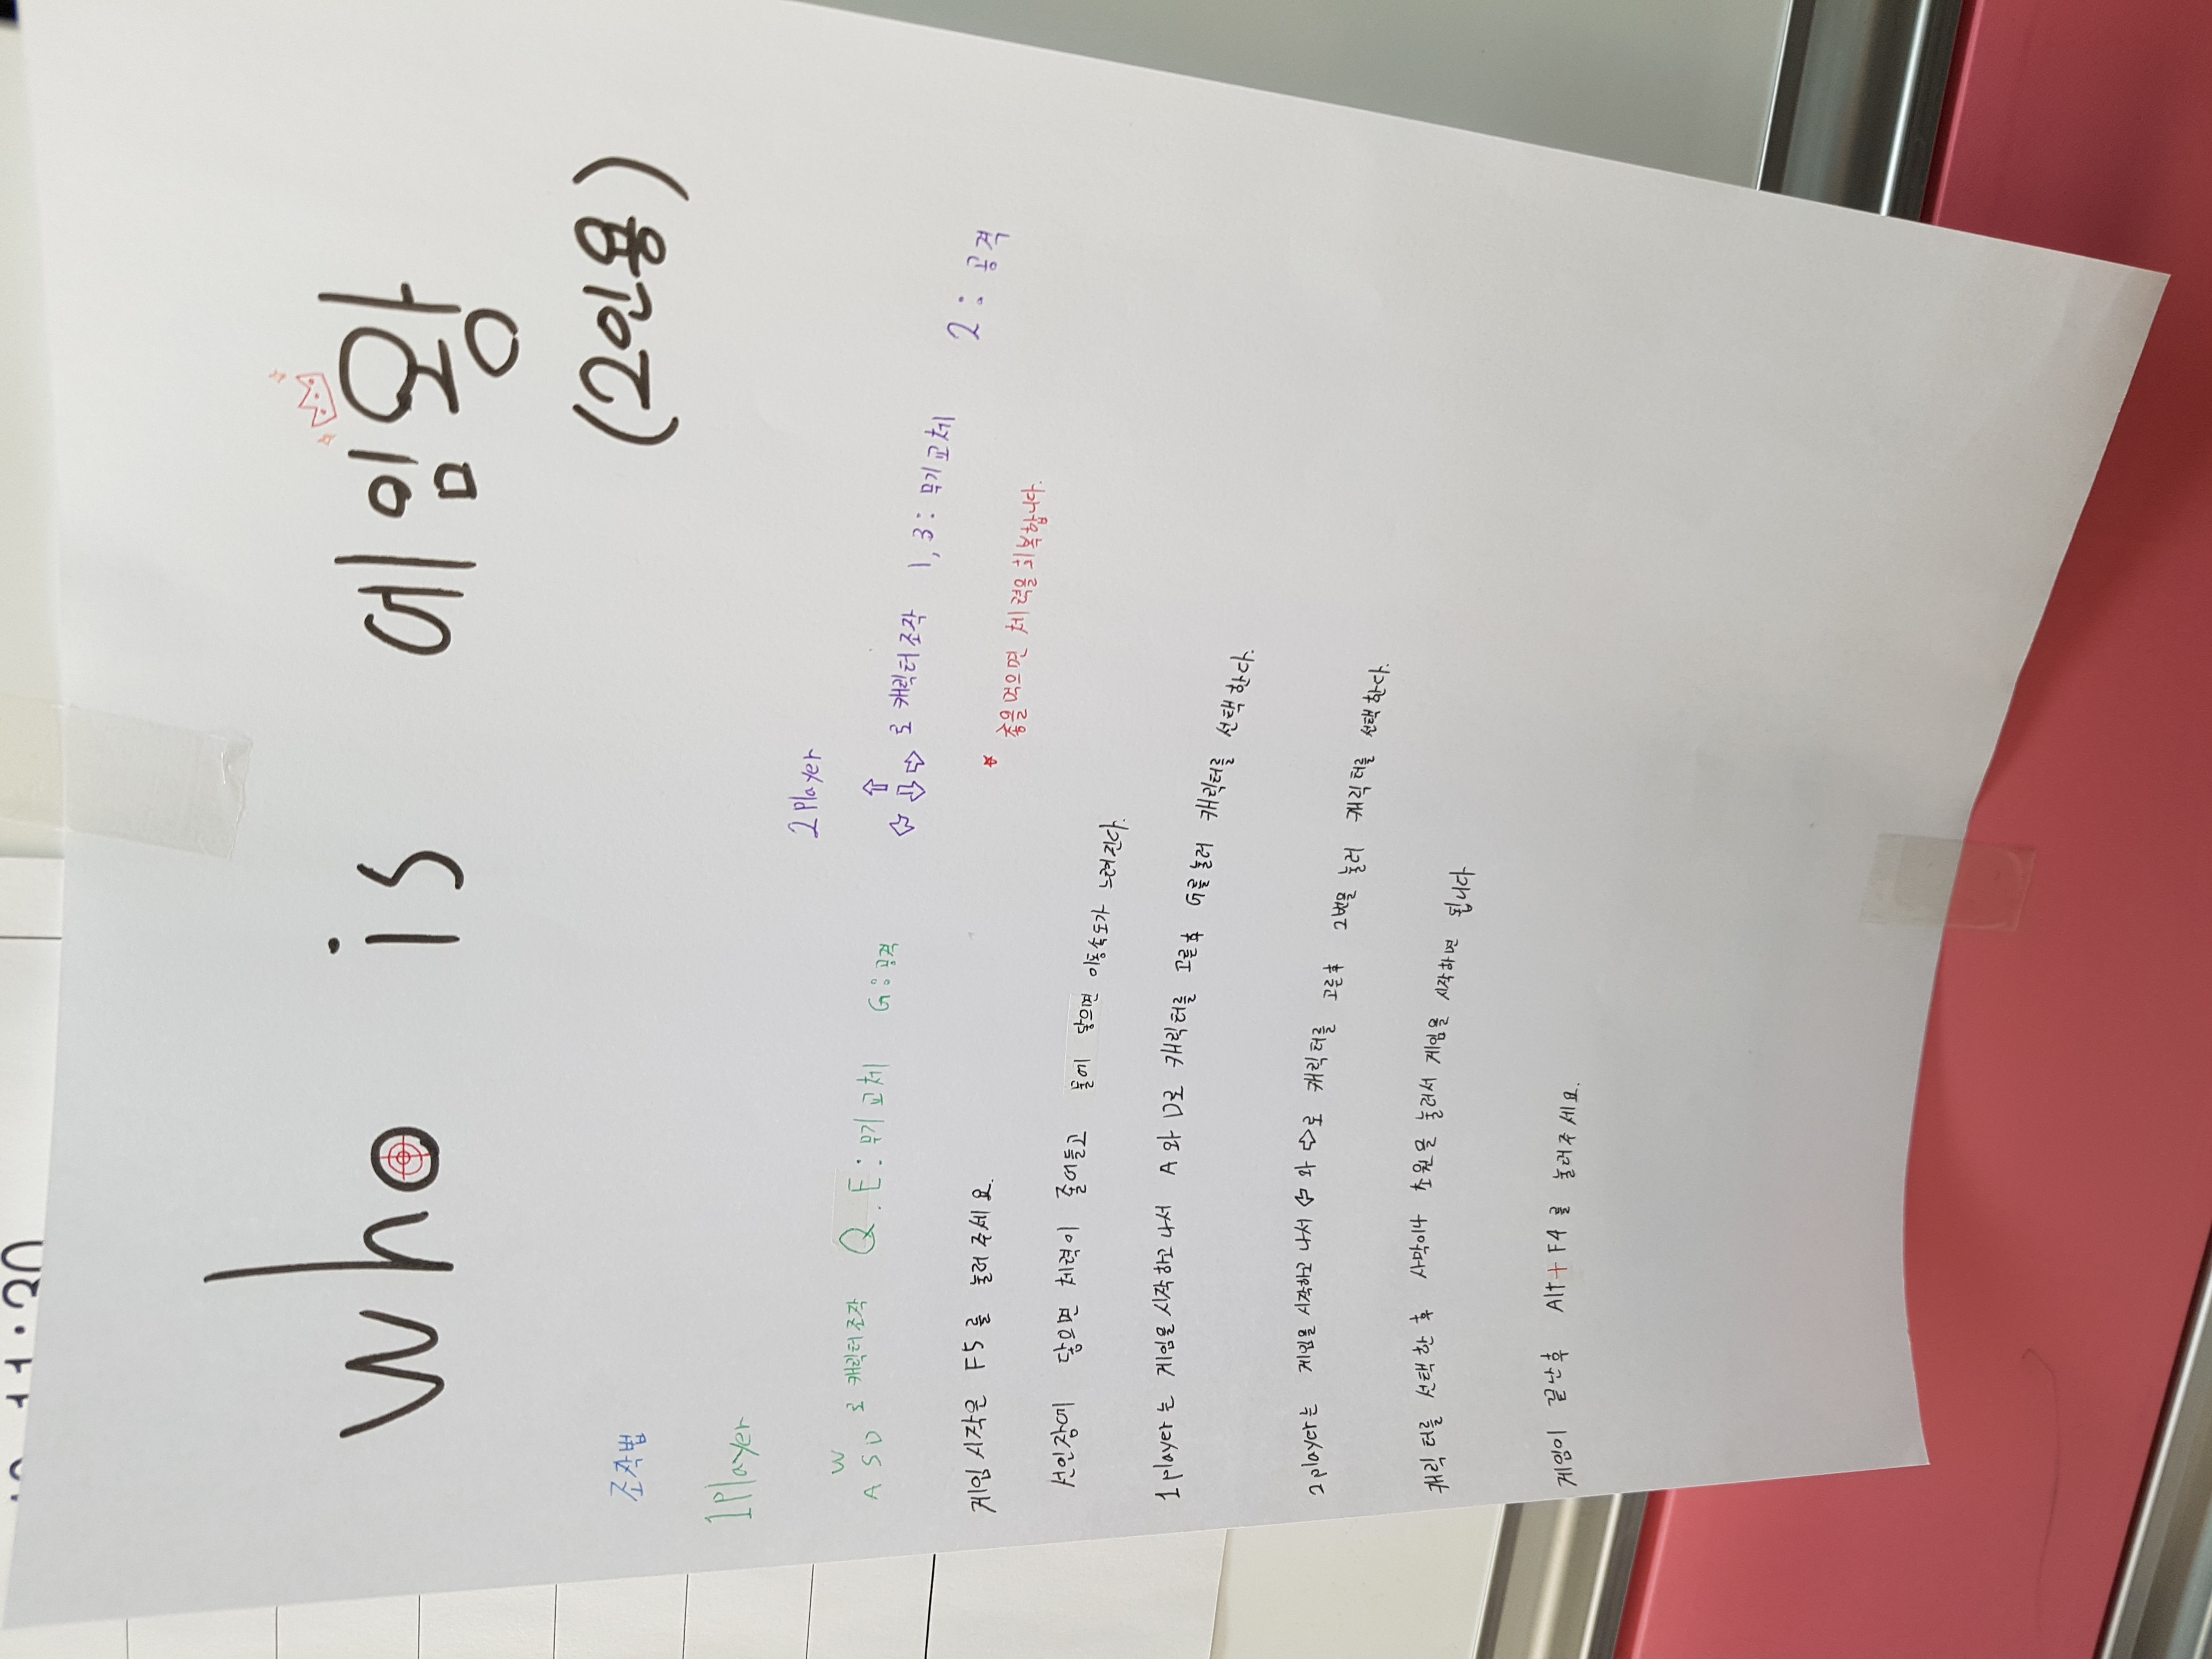 11:30
who is 에임왕
(2인용)
조작법
1Player
W
A S D 로 캐릭터조작 Q. E: 무기교체 G: 공격
2 Player
⇧
⇦ ⇩ ⇨ 로 캐릭터조작 1, 3: 무기교체 2: 공격
게임 시작은 F5를 눌러주세요.
* 총을먹으면 체력을 회복합니다.
선인장에 닿으면 체력이 줄어들고 물에 닿으면 이동속도가 느려진다.
1player는 게임을 시작하고 나서 A와 D로 캐릭터를 고른후 G를 눌러 캐릭터를 선택한다.
2player는 게임을 시작하고 나서 ⇦ 와 ⇨로 캐릭터를 고른후 2번을 눌러 캐릭터를 선택한다.
캐릭터를 선택한 후 사막이나 초원을 눌러서 게임을 시작하면 됩니다
게임이 끝난후 Alt+F4를 눌러주세요.